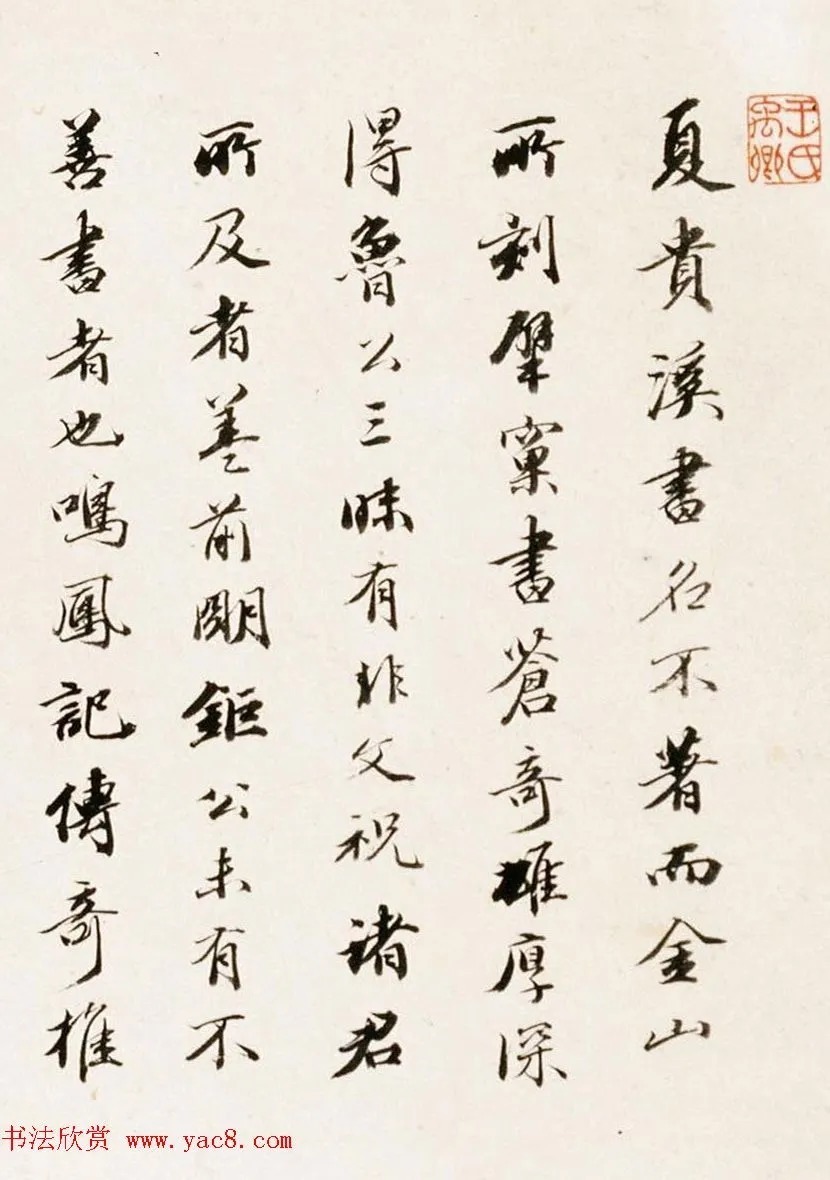 夏貴溪書名不著而金山
所刻擘窠書蒼奇雄厚深
得魯公三昧有非文祝諸君
所及者蓋前明鉅公未有不
善書者也鳴鳳記傳奇推
王氏禹卿
书法欣赏 www.yac8.com